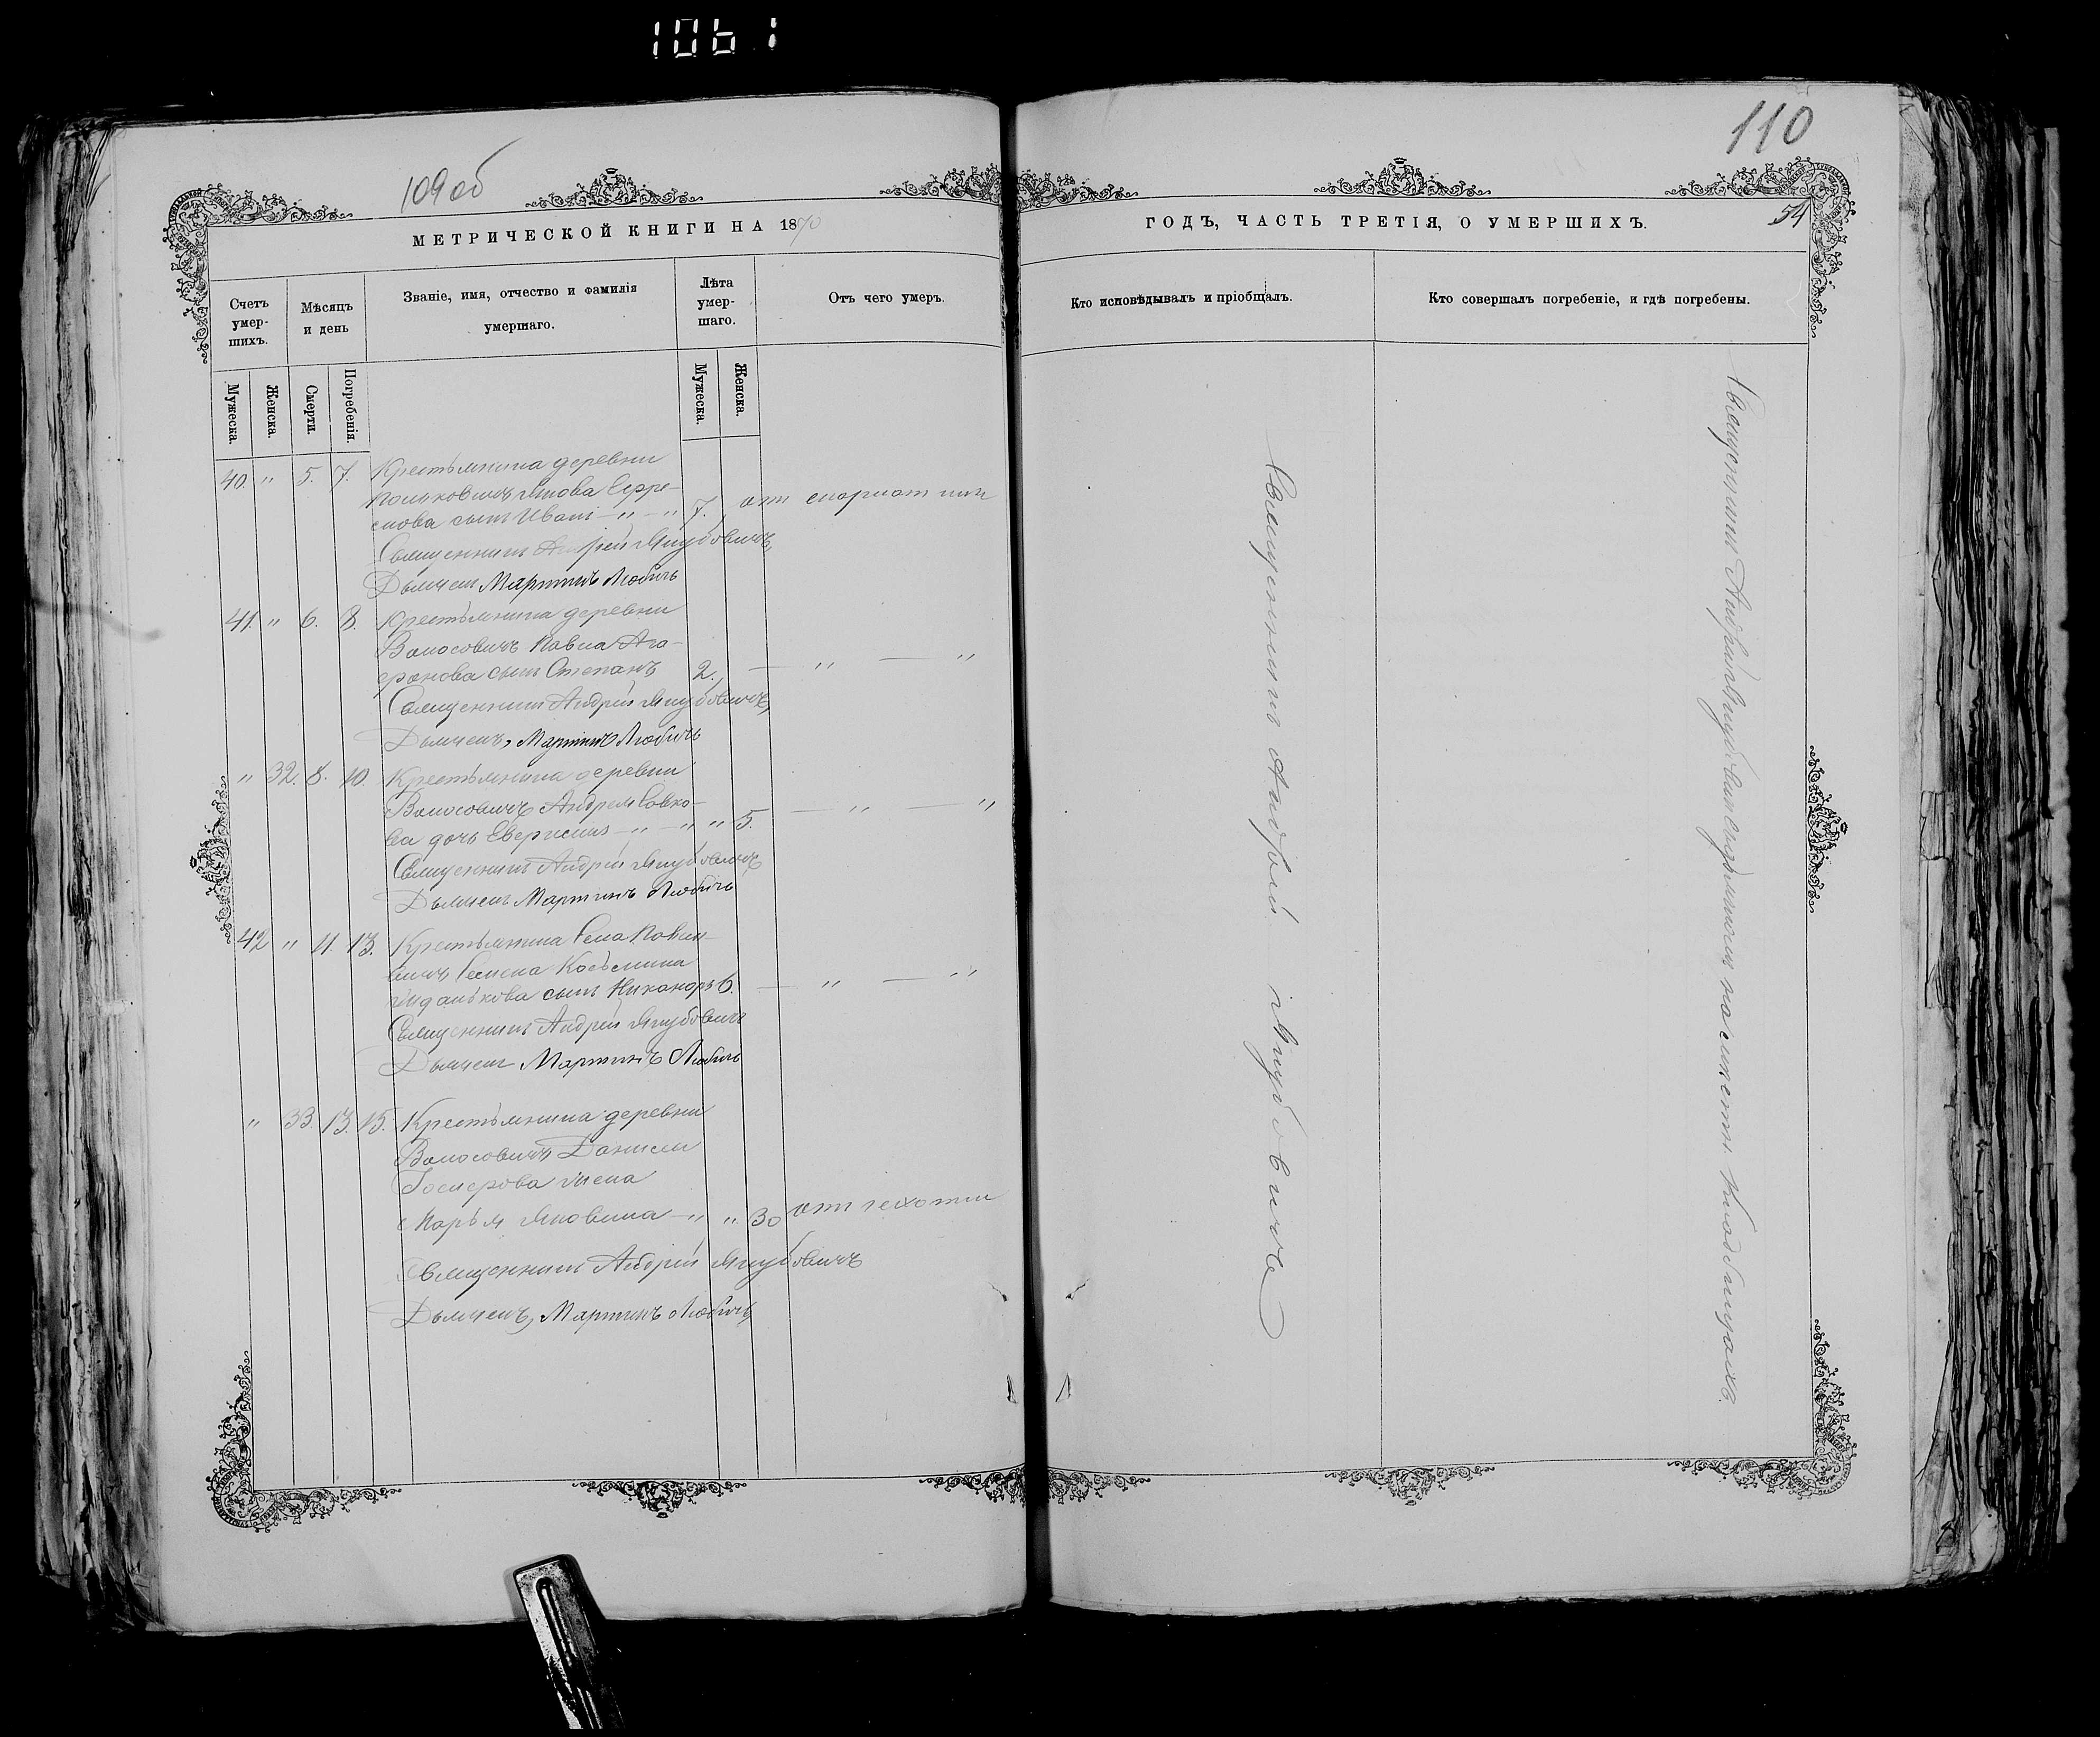 1061
109об
110
54
МЕТРИЧЕСКОЙ КНИГИ НА 1870
ГОДЪ, ЧАСТЬ ТРЕТІЯ, О УМЕРШИХЪ.
Счетъ умер-шихъ.
Мѣсяцъ и день
Званіе, имя, отчество и фамилія умершаго.
Лѣта умер-шаго.
Отъ чего умеръ.
Кто исповѣдывалъ и пріобщалъ.
Кто совершалъ погребеніе, и гдѣ погребены.
Мужеска.
Женска.
Смерти.
Погребенія.
Мужеска.
Женска.
40. " 5. 7. Крестьянина деревни
Якова Ефре-
мова сынъ Иванъ - " - " 7. отъ скарлатины
Священникъ Андрей Якубовичъ,
Дьячекъ Мартинъ Любичъ
41. " 6. 8. Крестьянина деревни
Волосовичъ Павла Ага-
сынъ Степанъ 2. — " — "
Священникъ Андрей Якубовичъ,
Дьячекъ, Мартинъ Любичъ
" 32. 8. 10. Крестьянина деревни
Волосовичъ Андрея Савко-
ва дочь - " - " " 5. — " — "
Священникъ Андрей Якубовичъ
Дьячекъ Мартинъ Любичъ
42 " 11. 13. Крестьянина села
Козьмина
сынъ Никаноръ 6. — " — "
Священникъ Андрей Якубовичъ
Дьячекъ Мартинъ Любичъ
" 33. 13. 15. Крестьянина деревни
Волосовичъ Данилы
жена
Марья Яковлева - " " 30 отъ чехотки
Священникъ Андрей Якубовичъ
Дьячекъ, Мартинъ Любичъ
Священникъ Андрей Якубовичъ
Священникъ Андрей Якубовичъ на кладбищахъ.